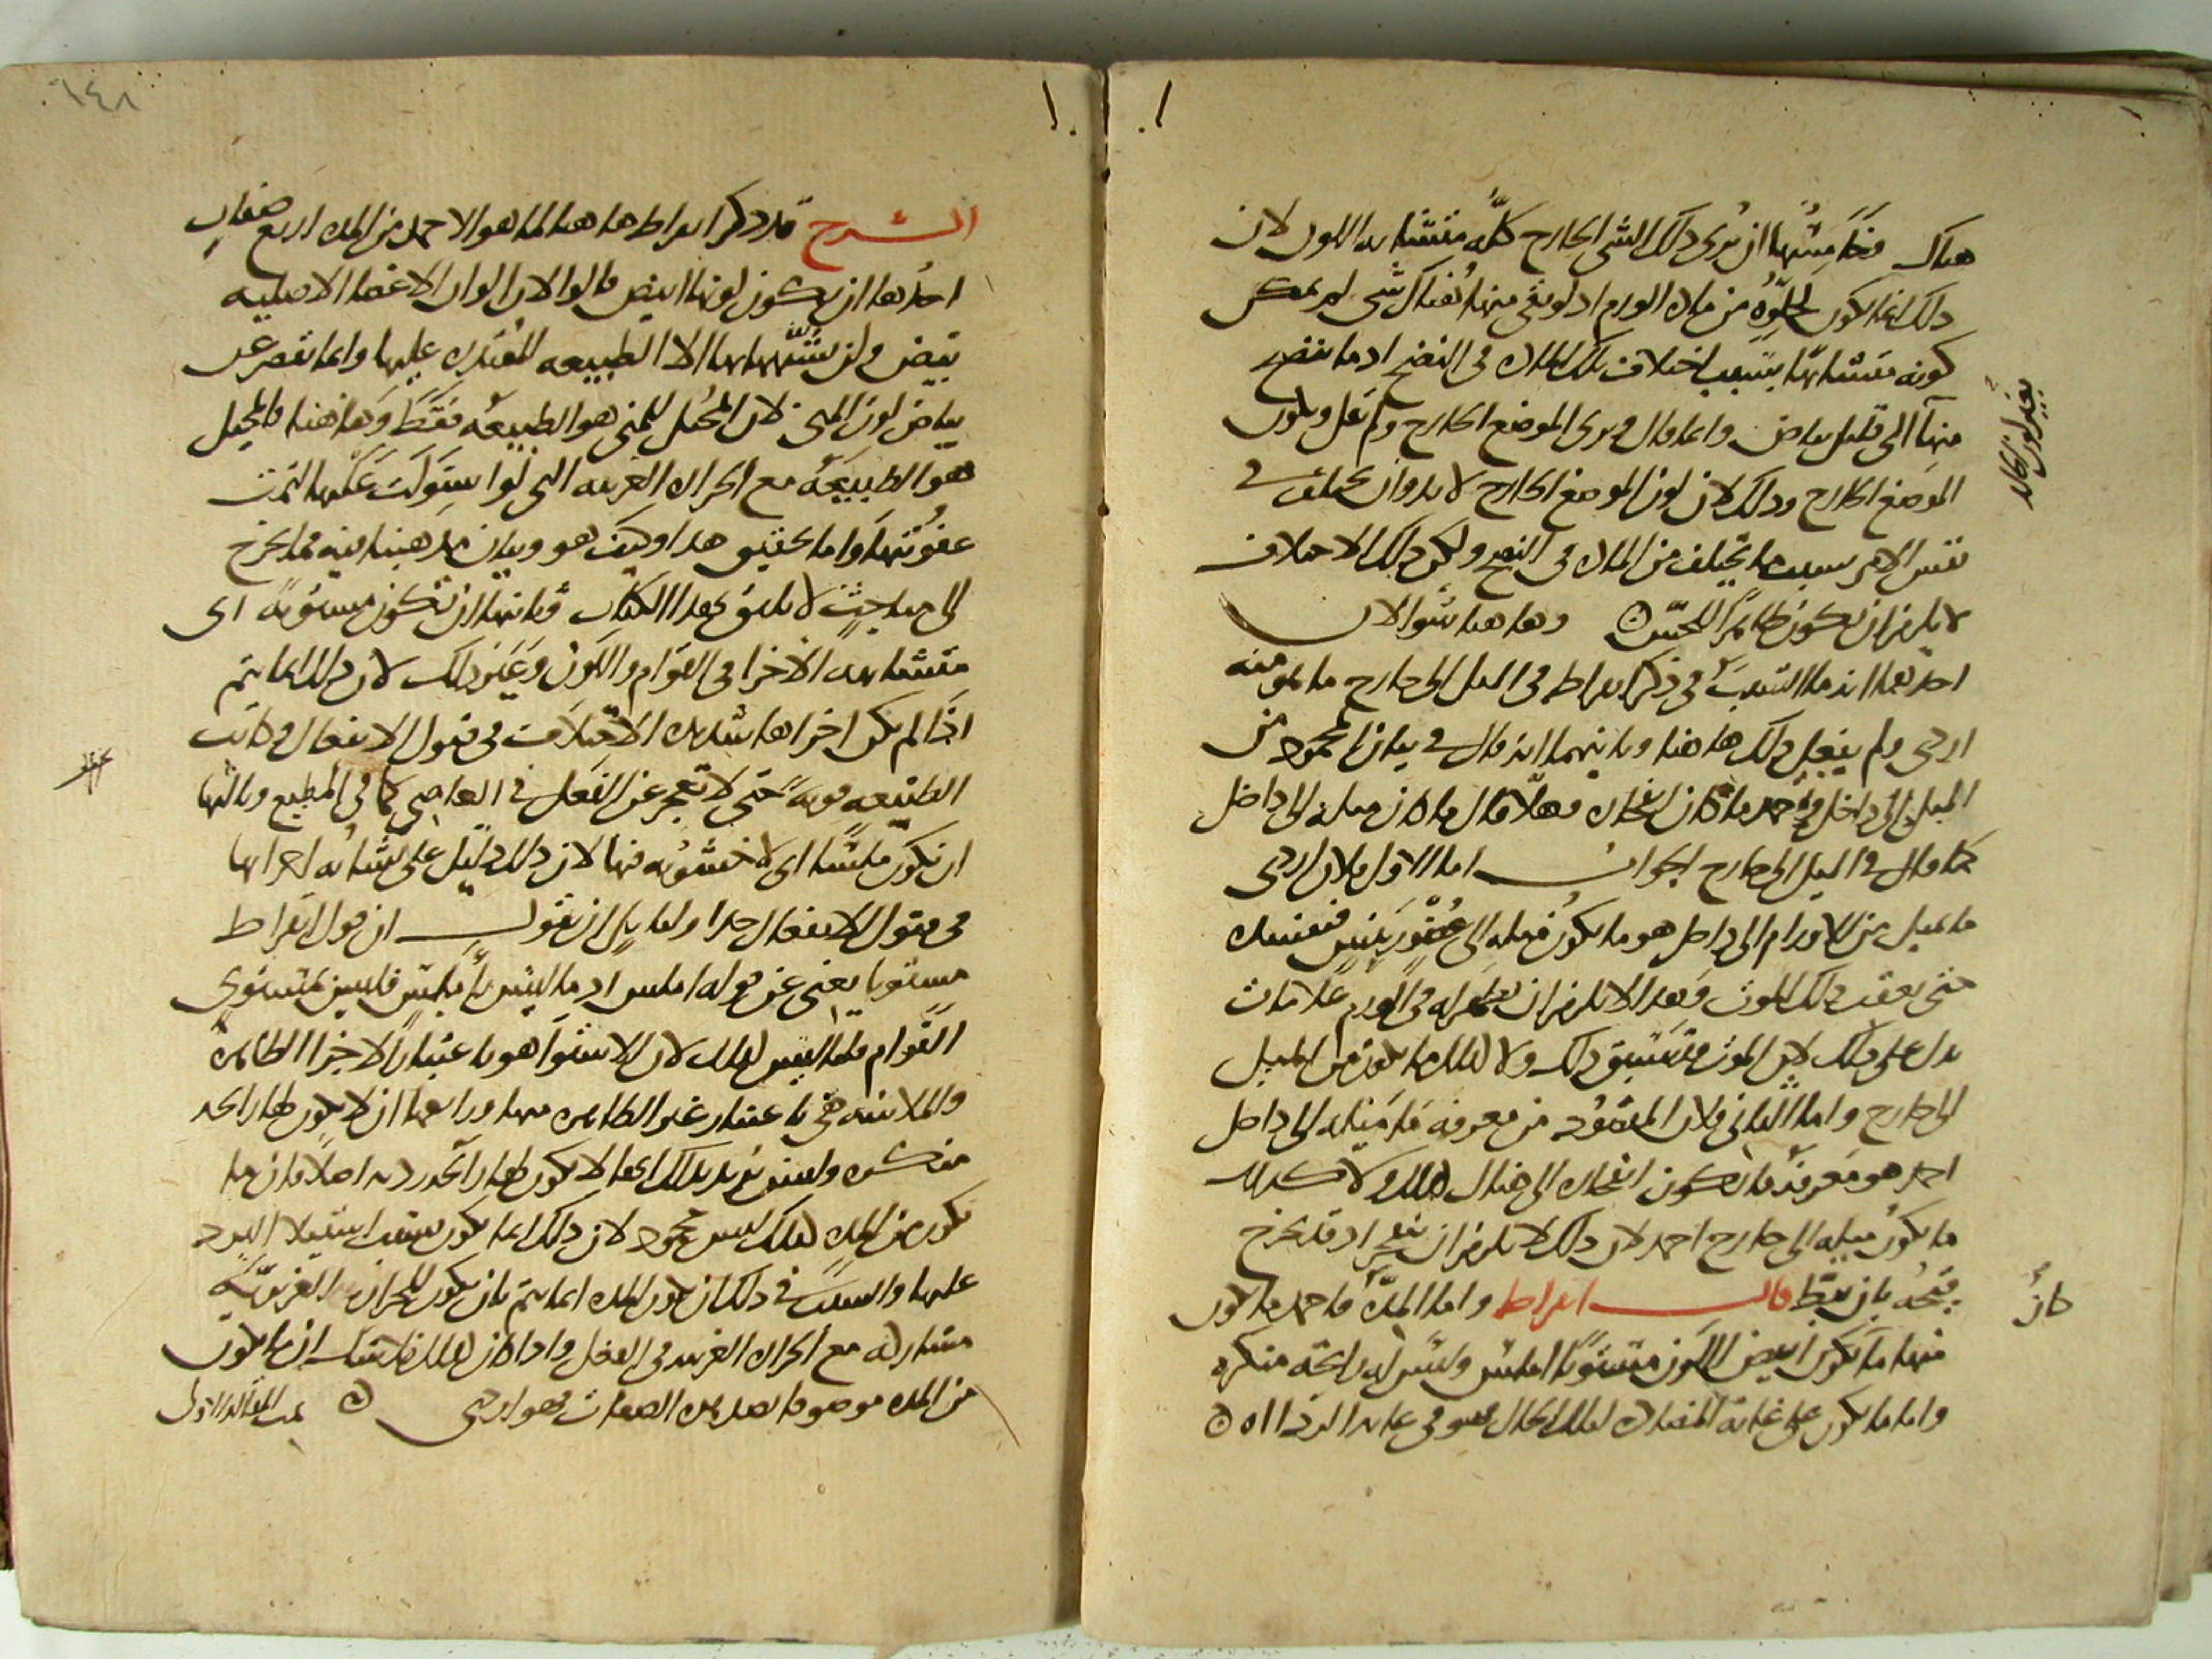 هناك وخامستها ان يرى ذلك الشى الخارج كله متشابه اللون لان
ذلك انما يكون لخلوه من مادة الورم اذ لو بقى منها هناك شى لم يمكن
كونه متشابها بسبب اختلاف تلك المادة فى النضج اذ ما نضج
منها الى قليل بياض وانما قال ويرى الموضع الخارج ولم يقل ويكون
الموضع الخارج وذلك لان لون الموضع الخارج لا بد وان يختلف فى
نفس الامر بسبب ما يختلف من المادة فى النضج ولكن ذلك الاختلاف
لا يلزم ان يكون ظاهرا للحس وها هنا سؤالان
احدهما انه ما السبب فى ذكر ابقراط فى الميل الى خارج ما هو منه
اردى ولم يفعل ذلك ها هنا وثانيهما انه قال فى بيان المحمود من
الميل الى داخل واحمد ما كان انفجاره فهلا قال ما كان ميله الى داخل
كما قال فى الميل الى خارج الجواب اما الاول فلان اردى
ما يميل من الاورام الى داخل هو ما يكون ميله الى عضو رئيس فيفسده
حتى يعقب ذلك الموت وهذا لا يلزم ان يظهر له فى الورم علامات
تدل على ذلك لان الموت يسبق ذلك ولا كذلك ما يكون من الميل
الى خارج واما الثانى فلان المقصود من معرفة ما ميله الى داخل
احمد هو معرفة ما يكون انفجاره الى هناك كذلك ولا كذلك
ما يكون ميله الى خارج احمد لان ذلك لا يلزم ان ينفجر اذ قد يخرج
قيحه بان يبط قال ابقراط واما المدة فاحمد ما يكون
منها ما يكون ابيض اللون مستويا املس وليس له رائحة منكرة
واما ما يكون على غاية المضادة لتلك الحال فهو فى غاية الرداة
بغير لون الجلد
كان
٦٤٨
الشرح قد ذكر ابقراط ها هنا لما هو الاحمد من المدة اربع صفات
احدها ان يكون لونها ابيض قالوا لان الوان الاعضا الاصلية
بيض ولن يشبهها بها الا الطبيعة المقتدرة عليها وانما نقصر عن
بياض لون المنى لان المحيل للمنى هو الطبيعة فقط وها هنا فالمحيل
هو الطبيعة مع الحرارة الغريبة التى لو استولت عليها التمت
عفونتها واما تحقيق هذا وكيف هو وبيان مذهبنا فيه مما يخرج
الى مباحث لا يليق بهذا الكتاب وثانيها ان تكون مستوية اى
متشابهة الاجزا فى القوام واللون وغير ذلك لان ذلك انما يتم
اذا لم يكن اجزاها شديدة الاختلاف فى قبول الانفعال وكانت
الطبيعة قوية حتى لا تعجز عن الفعل فى العاصى كما فى المطيع وثالثها
ان تكون ملسا اى لا خشونة فيها لان ذلك دليل على تشابه اجزائها
فى قبول الانفعال جدا ولقايل ان يقول ان قول ابقراط
مستويا يغنى عن قوله املس اذ ما ليس باملس فليس بمستوى
القوام قلنا ليس كذلك لان الاستوا هو باعتبار الاجزا الظاهرة
والملاسة هى باعتبار غير الظاهرة منها ورابعها ان لا يكون لها رائحة
منكرة ولسنا نريد بذلك انها لا يكون لها رائحة ردية اصلا فان ما
يكون من المدة كذلك ليس بمحمود لان ذلك انما يكون بسبب استيلا البرد
عليها والسبب فى ذلك ان تكون المدة انما يتم بان يكون للحرارة الغريزية
مشاركة مع الحرارة الغريبة فى الفعل واذا كان كذلك فلا شك ان ما يكون
من المدة موصوفا بضد هذه الصفات فهو اردى تمت المقالة الاولى